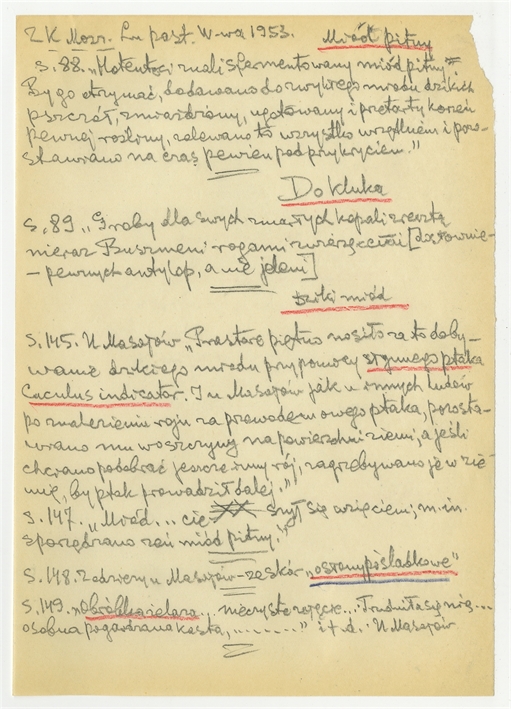 Z K Mosz. Lu past. W-wa 1953. Miód pitny
S. 88. „Hotentoci znali sfermentowany miód pitny.
By go otrzymać, dodawano do zwykłego miodu dzikich
pszczół, zmiażdżony, ugotowany i przetarty korzeń
pewnej rośliny, zalewano to wszystko wrzątkiem i pozo-
stawiano na czas pewien pod przykryciem."
Do kluka
S. 89 „Groby dla swych zmarłych kopali zresztą
nieraz Buszmeni rogami zwierzęcemi [dosłownie-
- pewnych antylop, a nie jeleni]
Dziki miód
S. 145. U Masajów „Prastare piętno nosiło za to doby-
wanie dzikiego miodu przy pomocy słynnego ptaka
Cuculus indicator. I u Masajów jak u innych ludów
po znalezieniu roju za przewodem owego ptaka, pozosta-
wiano mu woszczyny na powierzchni ziemi, a jeśli
chciano podebrać jeszcze inny rój, zagrzebywano je w zie-
mię, by ptak prowadził dalej."
S. 147. „Miód... cie szył się wzięciem; m. in.
sporządzano zeń miód pitny."
S. 148. Rodzaj u Masajów - ze skór „osłony pośladkowe"
S. 149. „Obróbka żelaza.. nieczyste zajęcie... Trudniła się nią...
osobna pogardzana kasta, ........" i t. d. U Masajów.